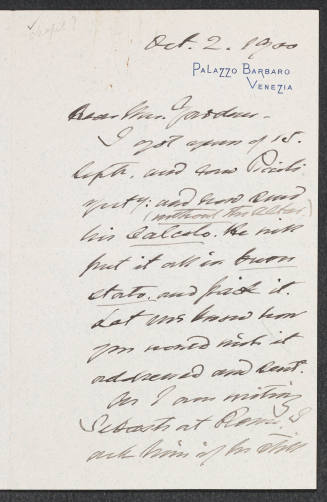 Oct. 2. 1900
PALAZZO BARBARO
VENEZIA
Dear Mrs. Gardner.
I got yours of 15.
Sept. and saw
and now send
(without the altar)
his Calcolo. He will
put it all in buon
stato, and pack it.
Let me know how
you would wish it
addressed and sent.
As I am writing
at Rome, I
ask him if he still